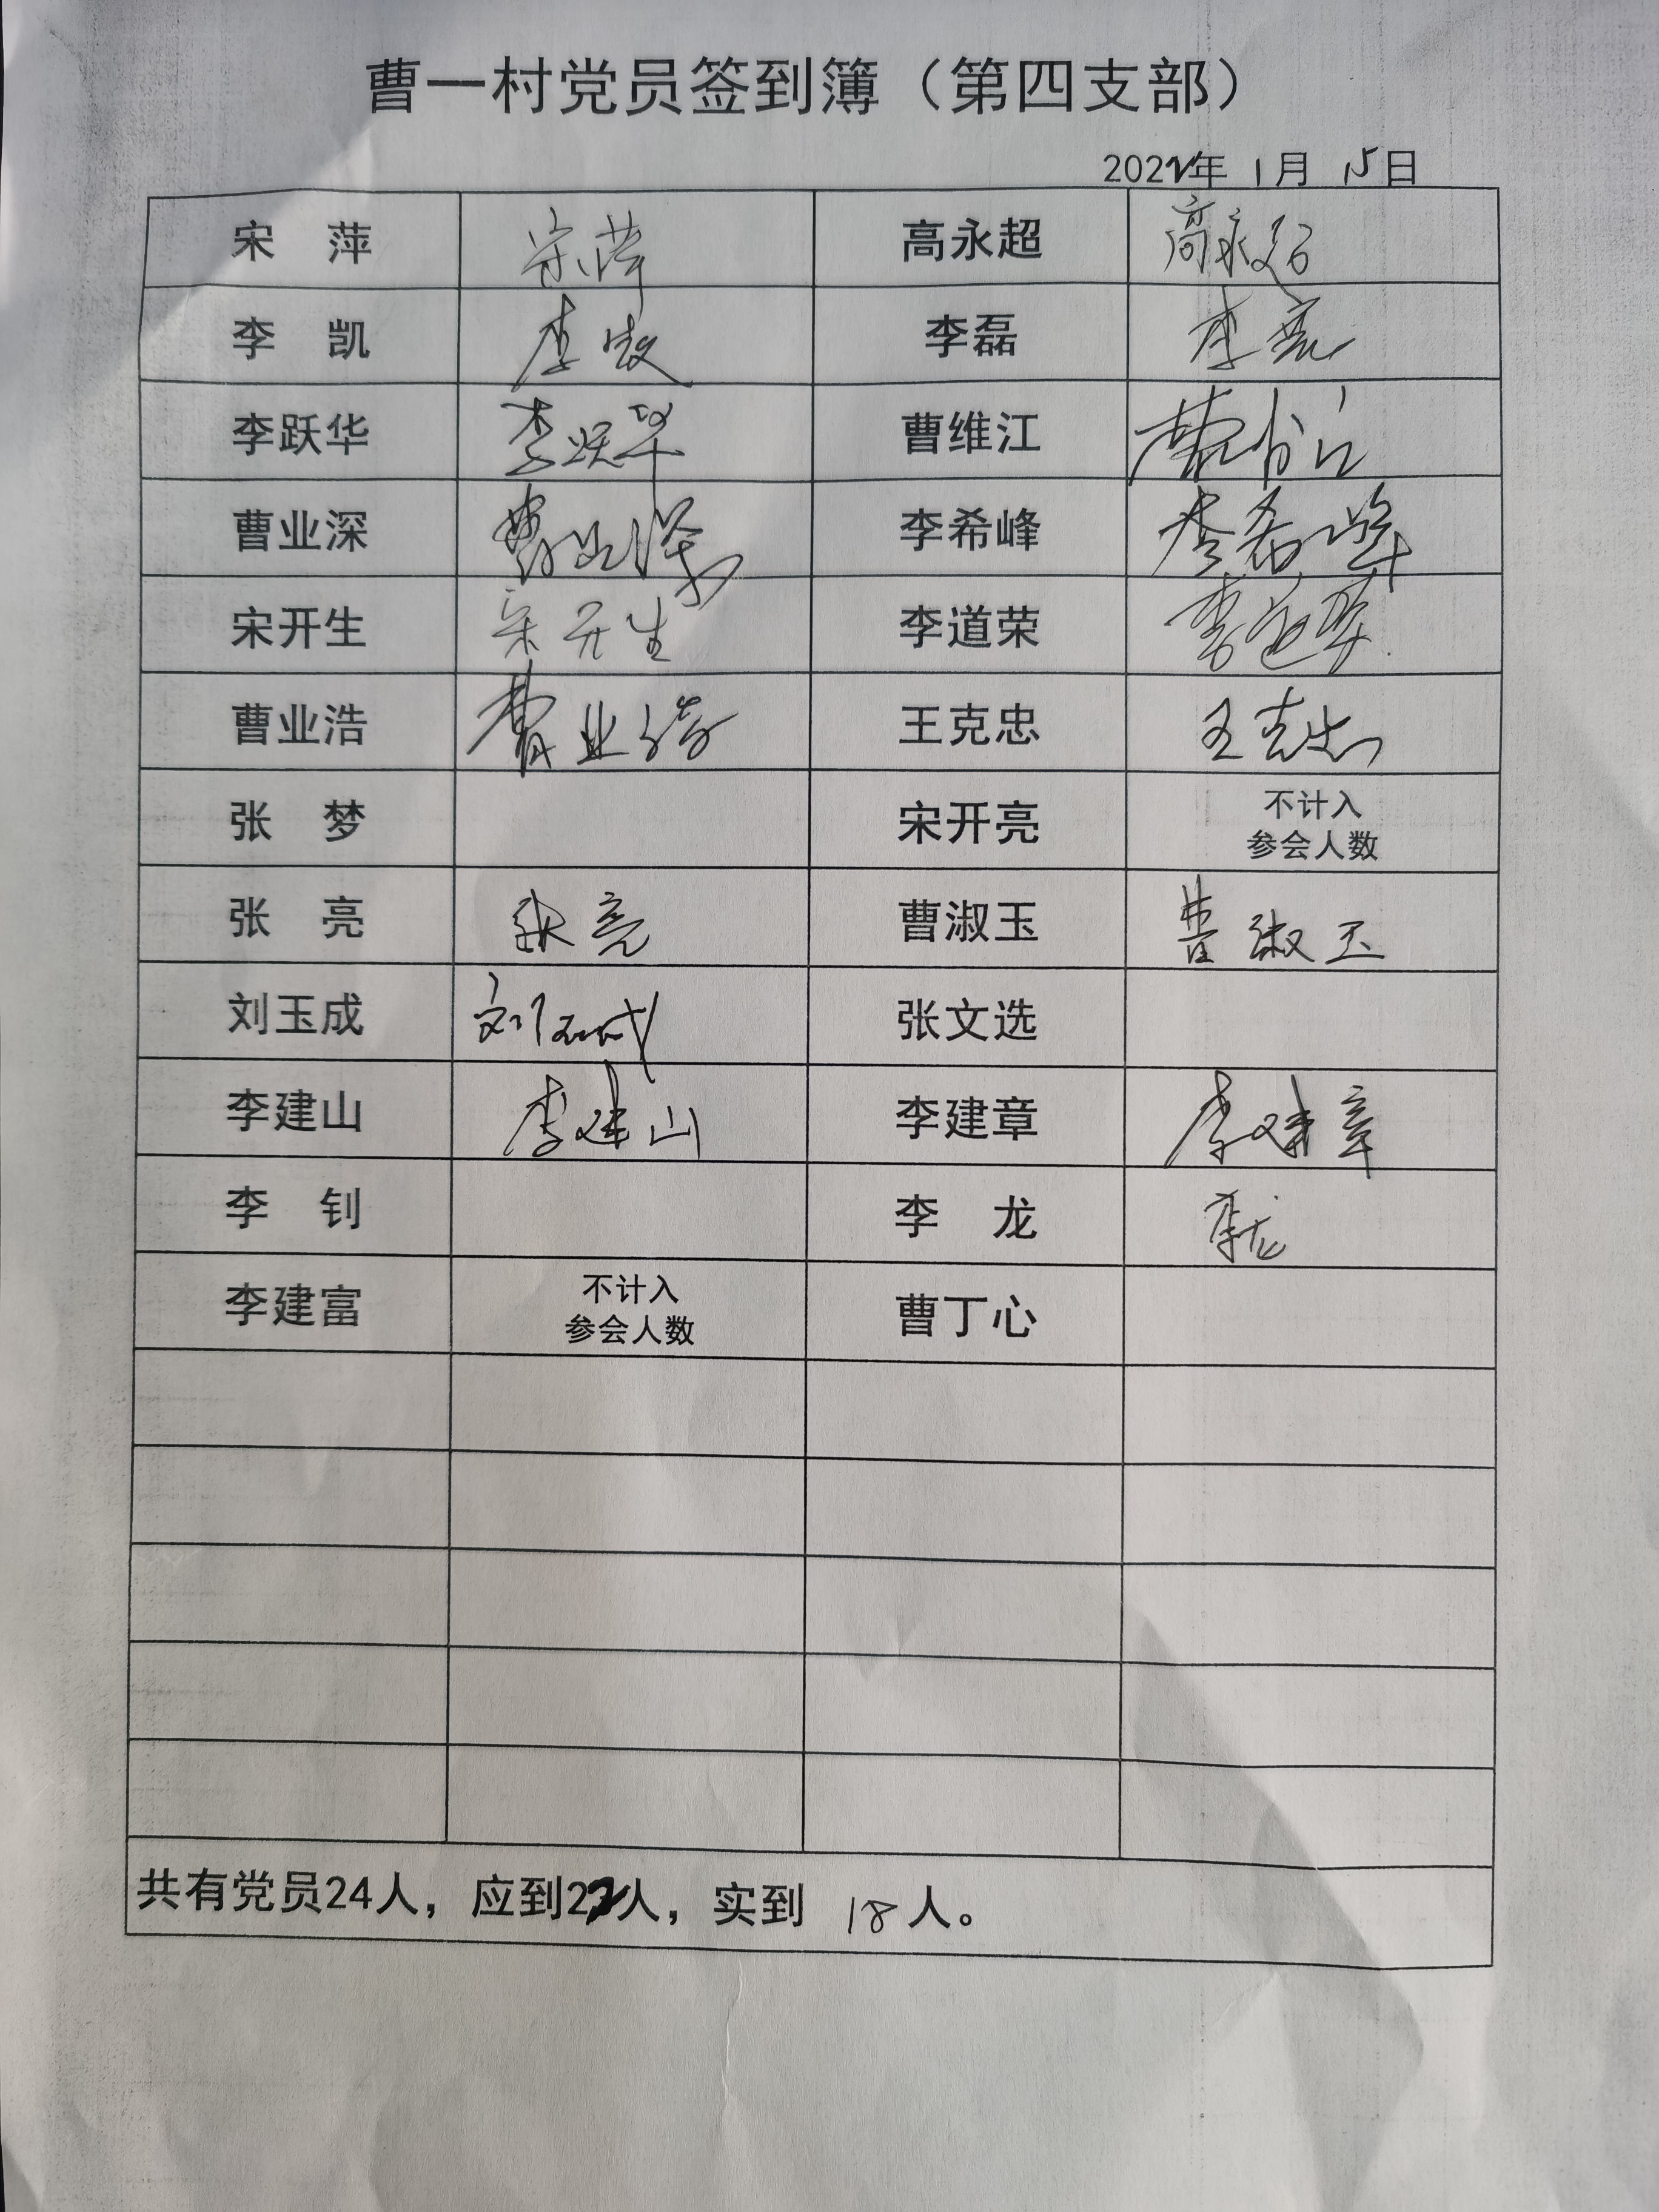 曹一村党员签到簿（第四支部）
2022年 1月 15日
宋 萍 宋萍 高永超 高永超
李 凯 李 李磊 李
李跃华 李跃华 曹维江 曹江
曹业深 曹业深 李希峰 李希峰
宋开生 宋开生 李道荣 李道荣
曹业浩 曹业浩 王克忠 王克忠
张 梦 宋开亮 不计入
参会人数
张 亮 张亮 曹淑玉 曹淑玉
刘玉成 刘玉成 张文选
李建山 李建山 李建章 李建章
李 钊 李 龙 李龙
李建富 不计入
参会人数 曹丁心
共有党员24人，应到22人，实到 18人。